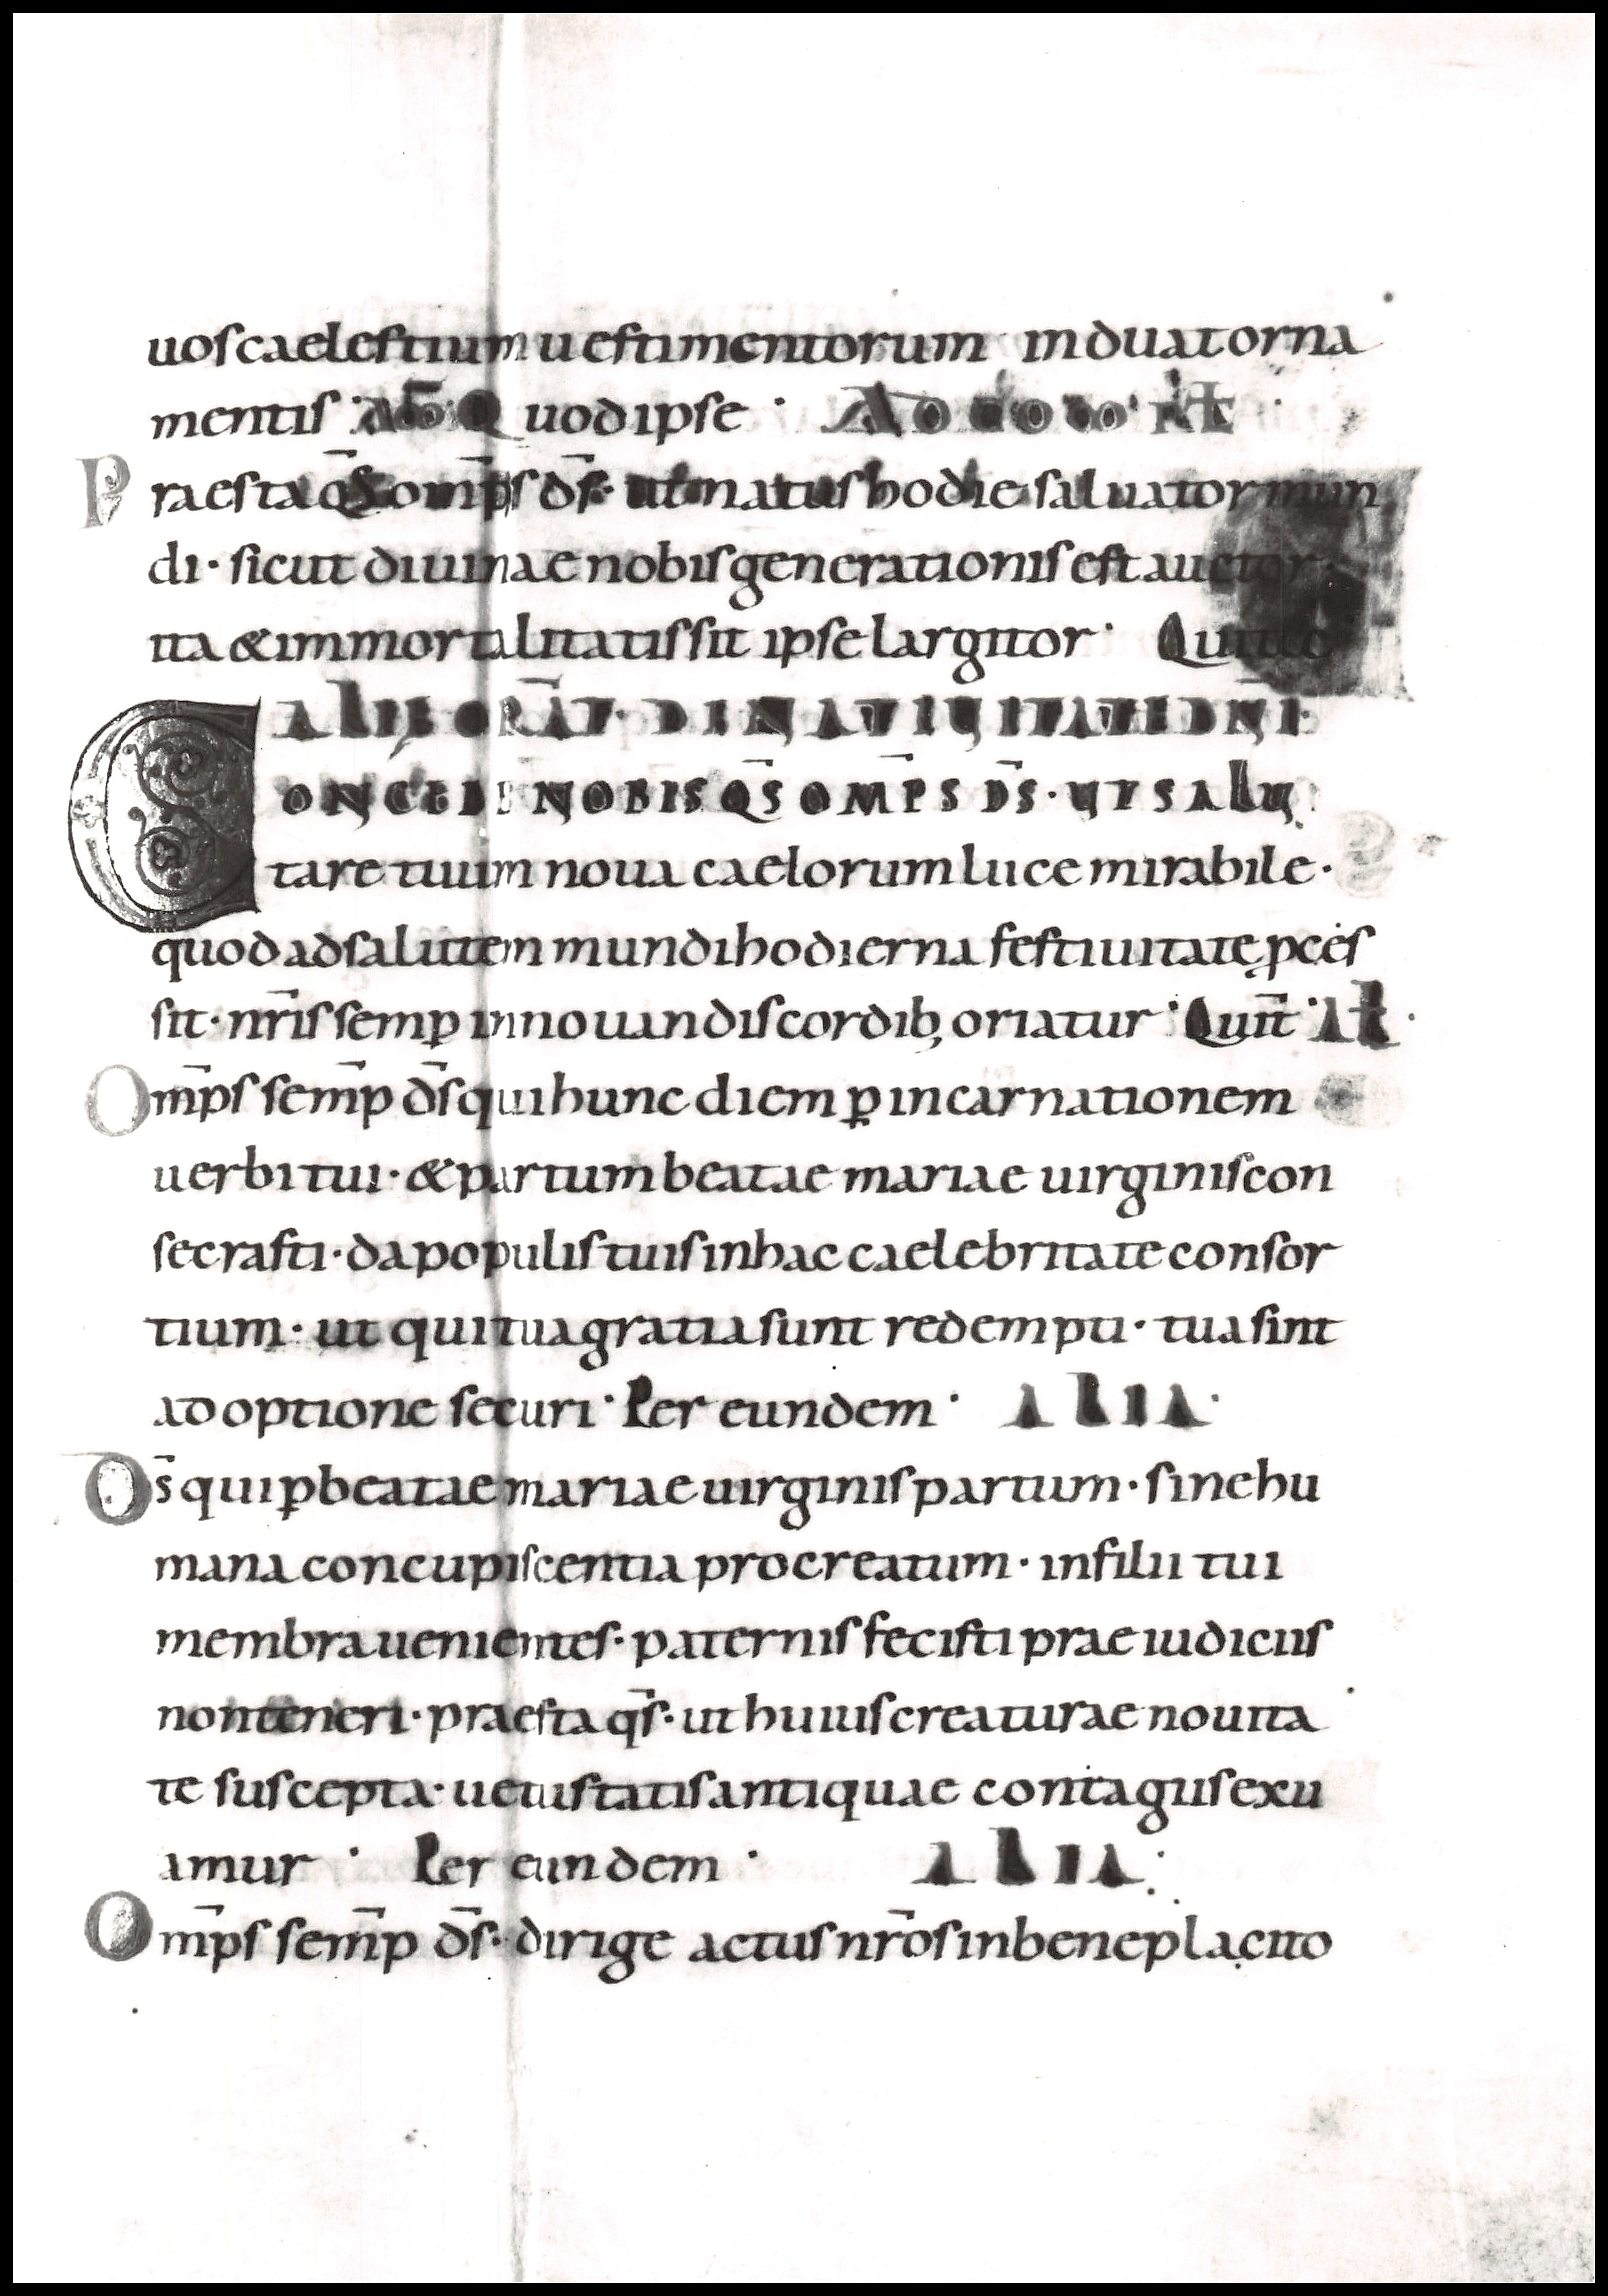 uos caelestium uestimentorum induat orna
mentis · AM̄ Quod ipse · AD COMO · P̄T
Praesta q̄s omp̄s d̄s · ut natus hodie saluator mun
di · sicut diuinae nobis generationis est auctor ·
ita & immortalitatis sit ipse largitor · Qui tec
ALIAE ORAT̄ · DE NATIUITATE DN̄I ·
CONCEDE NOBIS Q̄S OMP̄S D̄S · UT SALU
tare tuum noua caelorum luce mirabile ·
quod ad salutem mundi hodierna festiuitate ꝓces
sit · nr̄is semꝑ innouandis cordib; oriatur · Qui t̄ · AL̄ ·
Om̄ps sem̄p d̄s qui hunc diem ꝑ incarnationem
uerbi tui · & partum beatae mariae uirginis con
secrasti · da populis tuis in hac caelebritate consor
tium · ut qui tua gratia sunt redempti · tua sint
adoptione securi · Per eundem · ALIA ·
D̄s qui ꝑ beatae mariae uirginis partum · sine hu
mana concupiscentia procreatum · in filii tui
membra uenientes · paternis fecisti praeiudiciis
non teneri · praesta q̄s · ut huius creaturae nouita
te suscepta · uetustatis antiquae contagiis exu
amur · Per eundem · ALIA ·
Om̄ps sem̄p d̄s · dirige actus nr̄os in beneplacito